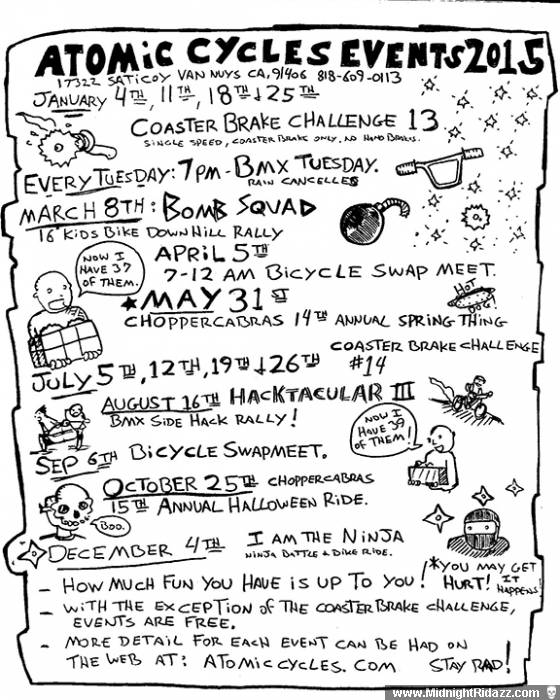 ATOMIC CYCLES EVENTS 2015
17322 SATICOY VAN NUYS CA, 91406 818-609-0113
JANUARY 4TH, 11TH, 18TH + 25TH
COASTER BRAKE CHALLENGE 13
SINGLE SPEED, COASTER BRAKE ONLY, NO HAND BRAKES.
EVERY TUESDAY: 7PM - BMX TUESDAY.
RAIN CANCELLES
MARCH 8TH: BOMB SQUAD
16" KIDS BIKE DOWN HILL RALLY
APRIL 5TH
7-12 AM BICYCLE SWAP MEET.
NOW I
HAVE 37
OF THEM.
*MAY 31ST
HOT
DOG!
CHOPPERCABRAS 14TH ANNUAL SPRING THING
COASTER BRAKE CHALLENGE
#14
JULY 5TH, 12TH, 19TH + 26TH
AUGUST 16TH HACKTACULAR III
BMX SIDE HACK RALLY!
NOW I
HAVE 39
OF THEM!
SEP 6TH BICYCLE SWAPMEET.
OCTOBER 25TH CHOPPERCABRAS
15TH ANNUAL HALLOWEEN RIDE.
BOO.
DECEMBER 4TH I AM THE NINJA
NINJA BATTLE & BIKE RIDE.
*YOU MAY GET
HURT! IT
HAPPENS!
- HOW MUCH FUN YOU HAVE IS UP TO YOU!
- WITH THE EXCEPTION OF THE COASTER BRAKE CHALLENGE,
EVENTS ARE FREE.
- MORE DETAIL FOR EACH EVENT CAN BE HAD ON
THE WEB AT: ATOMICCYCLES.COM STAY RAD!
www.MidnightRidazz.com